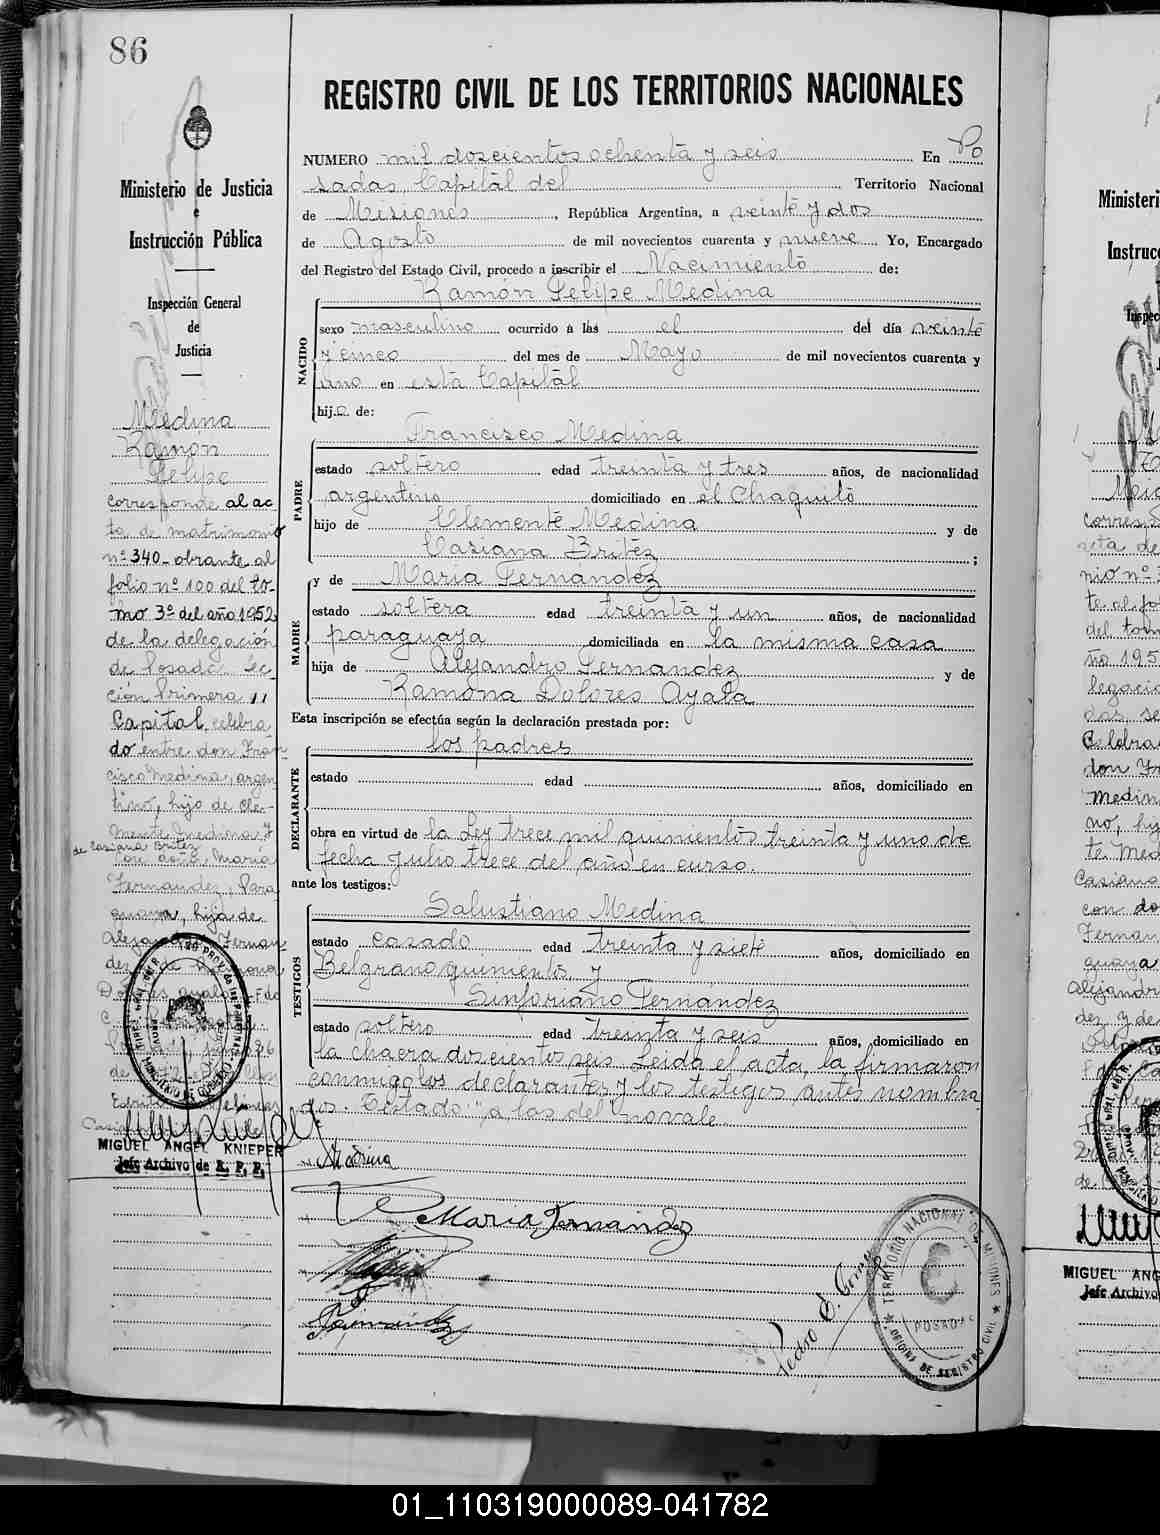 86
Ministerio de Justicia
e
Instrucción Pública
Inspección General
de
Justicia
Medina
Ramón
Felipe
corresponde al ac
ta de matrimonio
nº 340 obrante al
folio nº 100 del to-
mo 3º del año 1952
de la delegación
de Posadas Sec
ción Primera
Capital, celebra
do entre don Fran
cisco Medina, argen
tino, hijo de Cle-
mente Medina y
de Casiana Britez
con doña María
Fernandez, Para
guaya, hija de
Alejandro Fernan
dez y de Ramona
Dolores Ayala
MIGUEL ANGEL KNIEPER
Jefe Archivo de R. P. P.
REGISTRO CIVIL DE LOS TERRITORIOS NACIONALES
NUMERO mil doscientos ochenta y seis En Po
sadas Capital del Territorio Nacional
de Misiones, República Argentina, a veinte y dos
de Agosto de mil novecientos cuarenta y nueve Yo, Encargado
del Registro del Estado Civil, procedo a inscribir el Nacimiento de:
Ramón Felipe Medina
NACIDO
sexo masculino ocurrido a las el del día veinte
y cinco del mes de Mayo de mil novecientos cuarenta y
uno en esta Capital
hijo de:
Francisco Medina
PADRE
estado soltero edad treinta y tres años, de nacionalidad
argentino domiciliado en el Chaquito
hijo de Clemente Medina y de
Casiana Britez ;
y de María Fernández
MADRE
estado soltera edad treinta y un años, de nacionalidad
paraguaya domiciliada en la misma casa
hija de Alejandro Fernandez y de
Ramona Dolores Ayala
Esta inscripción se efectúa según la declaración prestada por:
los padres
DECLARANTE
estado edad años, domiciliado en
obra en virtud de la Ley trece mil quinientos treinta y uno de
fecha Julio trece del año en curso.
ante los testigos:
Salustiano Medina
TESTIGOS
estado casado edad treinta y siete años, domiciliado en
Belgrano quinientos y
Sinforiano Fernández
estado soltero edad treinta y seis años, domiciliado en
la chacra doscientos seis Leida el acta, la firmaron
conmigo los declarantes y los testigos antes nombra
dos. Testado "a las del" no vale.
Medina
María Fernandez
Fernández
Pedro S. Gomez
TERRITORIO NACIONAL DE MISIONES
POSADAS
OFICINA DE REGISTRO CIVIL
Ministeri
Instrucc
Inspec
corres
nio nº
te al fo
del tom
ño 195
legació
das se
Celebra
don Fr
Medin
no, hij
te Med
Casiana
con do
Fernan
guaya
Alejandr
dez y de
MIGUEL ANG
Jefe Archivo
01_110319000089-041782